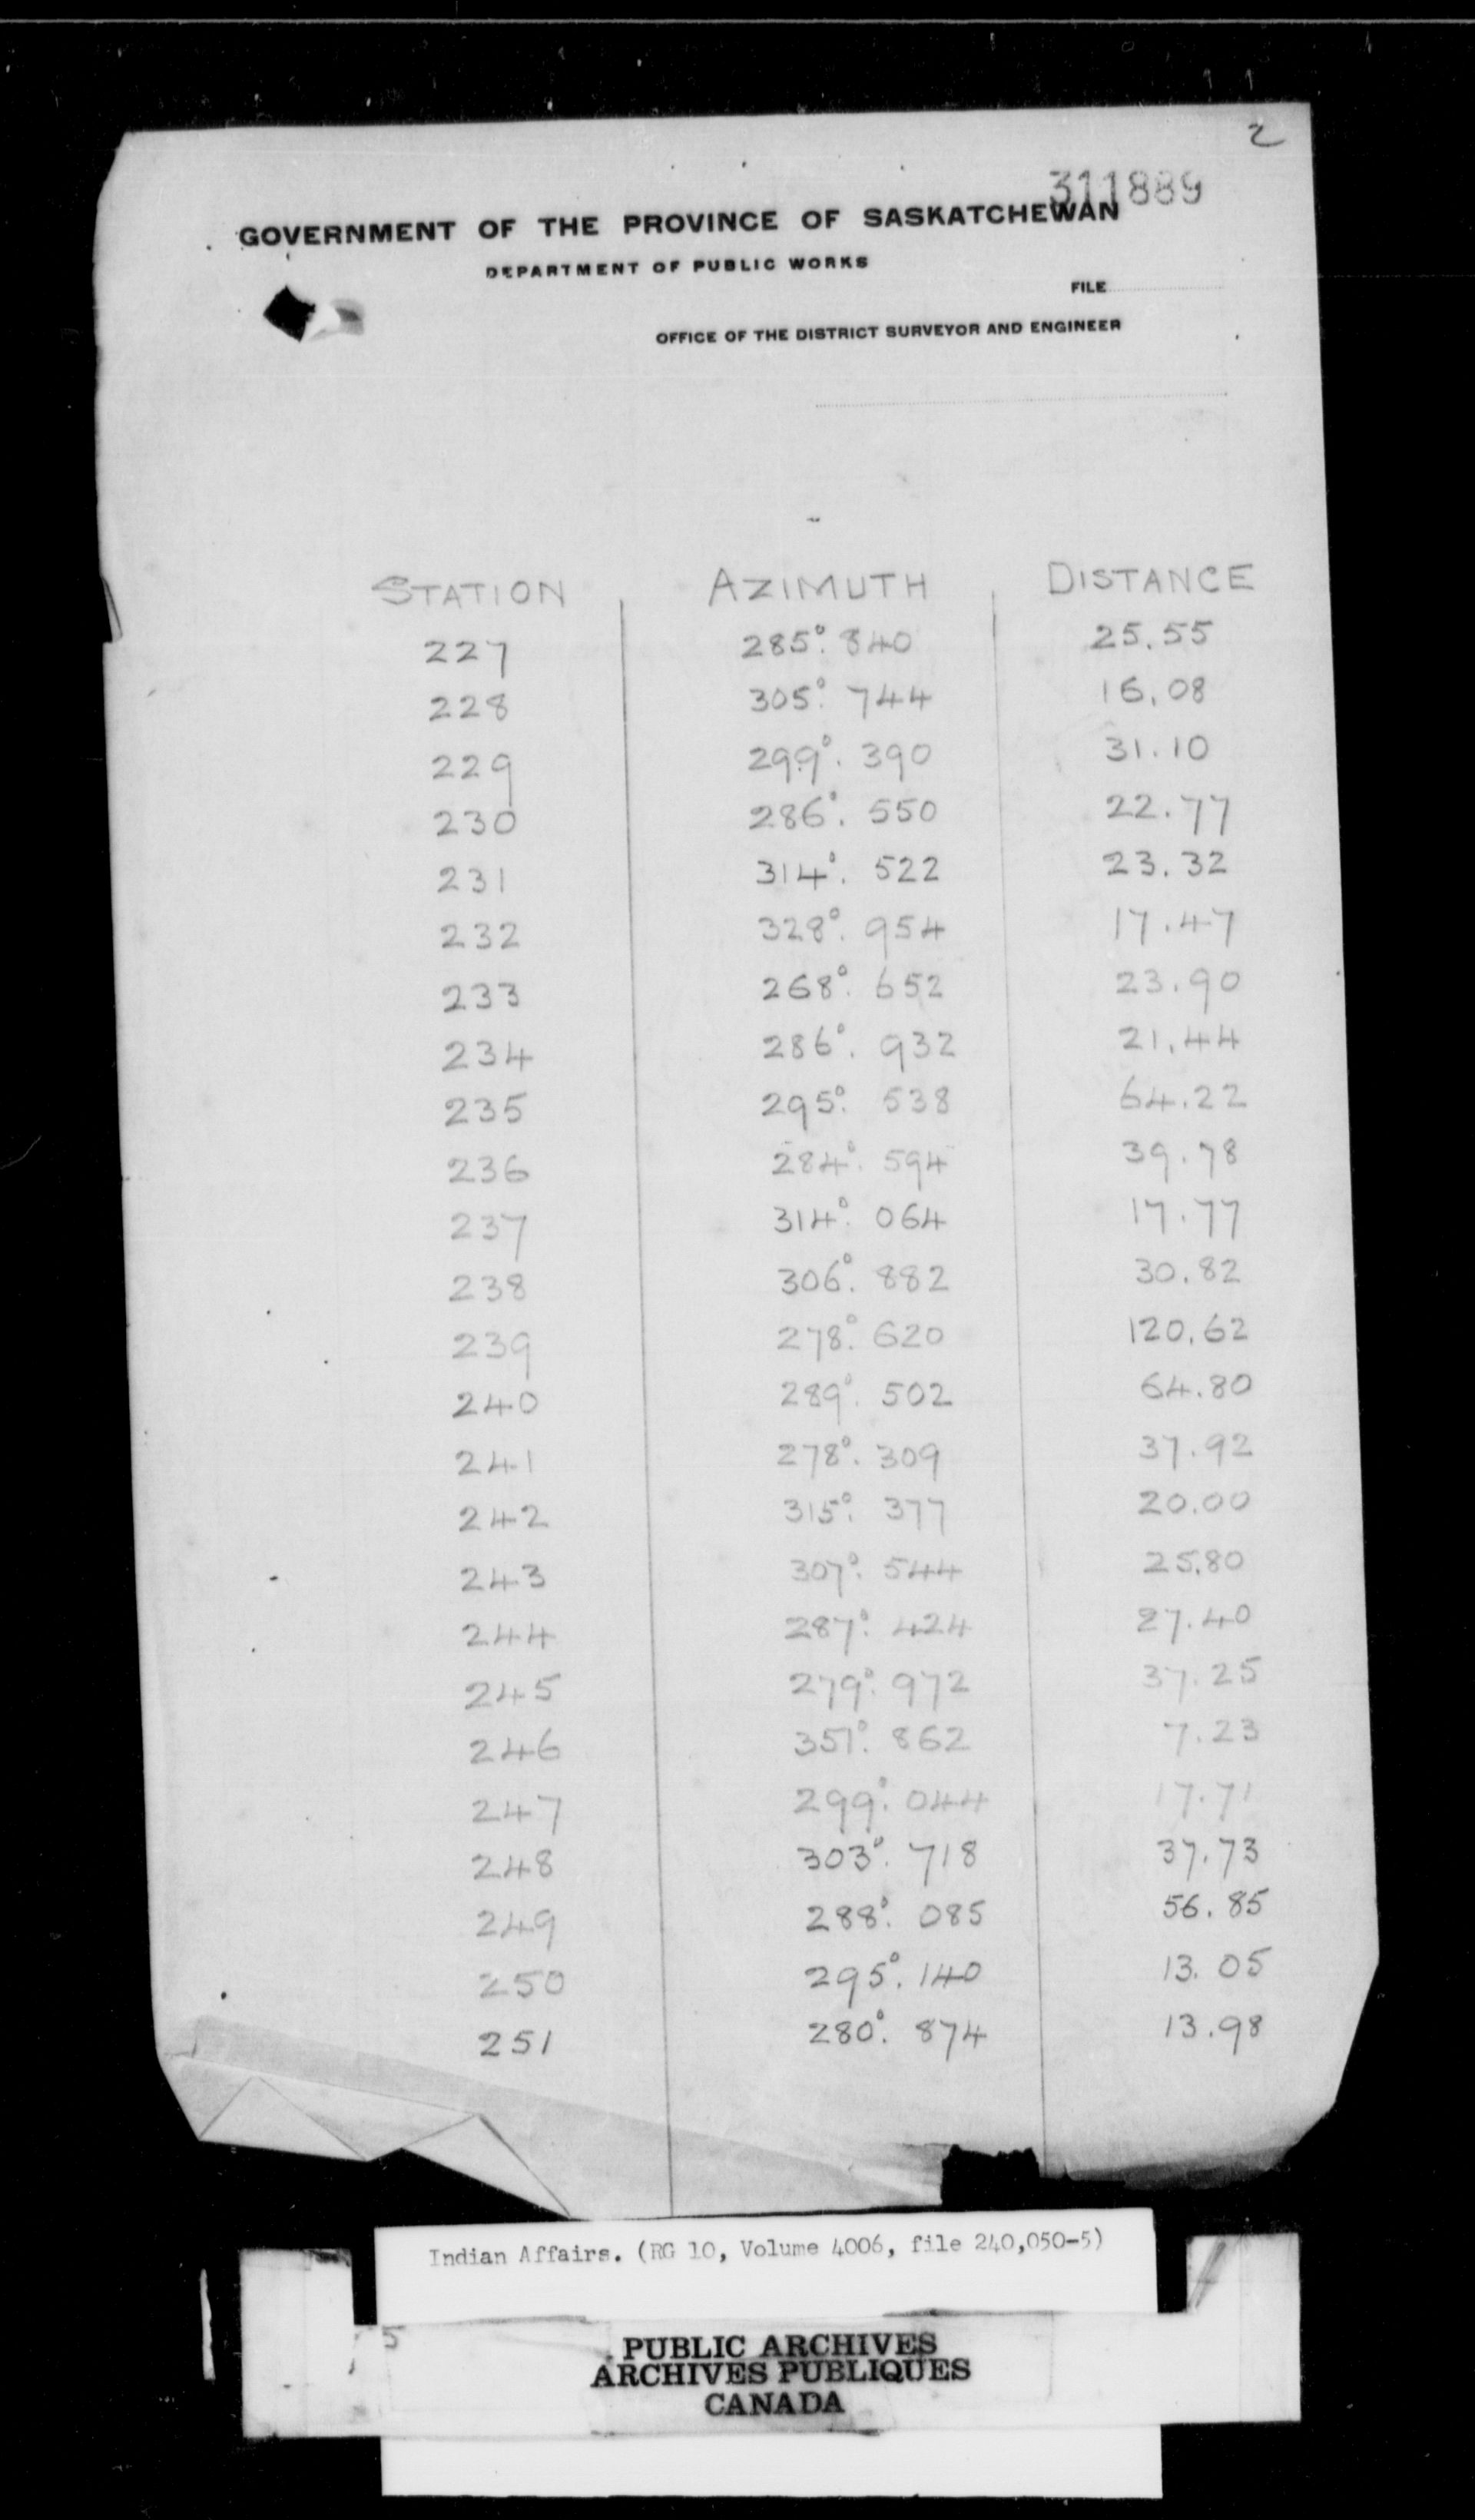 2
311889
GOVERNMENT OF THE PROVINCE OF SASKATCHEWAN
DEPARTMENT OF PUBLIC WORKS
FILE
OFFICE OF THE DISTRICT SURVEYOR AND ENGINEER
STATION AZIMUTH DISTANCE
227 285°.840 25.55
228 305°.744 16.08
229 299°.390 31.10
230 286°.550 22.77
231 314°.522 23.32
232 328°.954 17.47
233 268°.652 23.90
234 286°.932 21.44
235 295°.538 64.22
236 284°.594 39.78
237 314°.064 17.77
238 306°.882 30.82
239 278°.620 120.62
240 289°.502 64.80
241 278°.309 37.92
242 315°.377 20.00
243 307°.544 25.80
244 287°.424 27.40
245 279°.972 37.25
246 351°.862 7.23
247 299°.044 17.71
248 303°.718 37.73
249 288°.085 56.85
250 295°.140 13.05
251 280°.874 13.98
Indian Affairs. (RG 10, Volume 4006, file 240,050-5)
5
PUBLIC ARCHIVES
ARCHIVES PUBLIQUES
CANADA